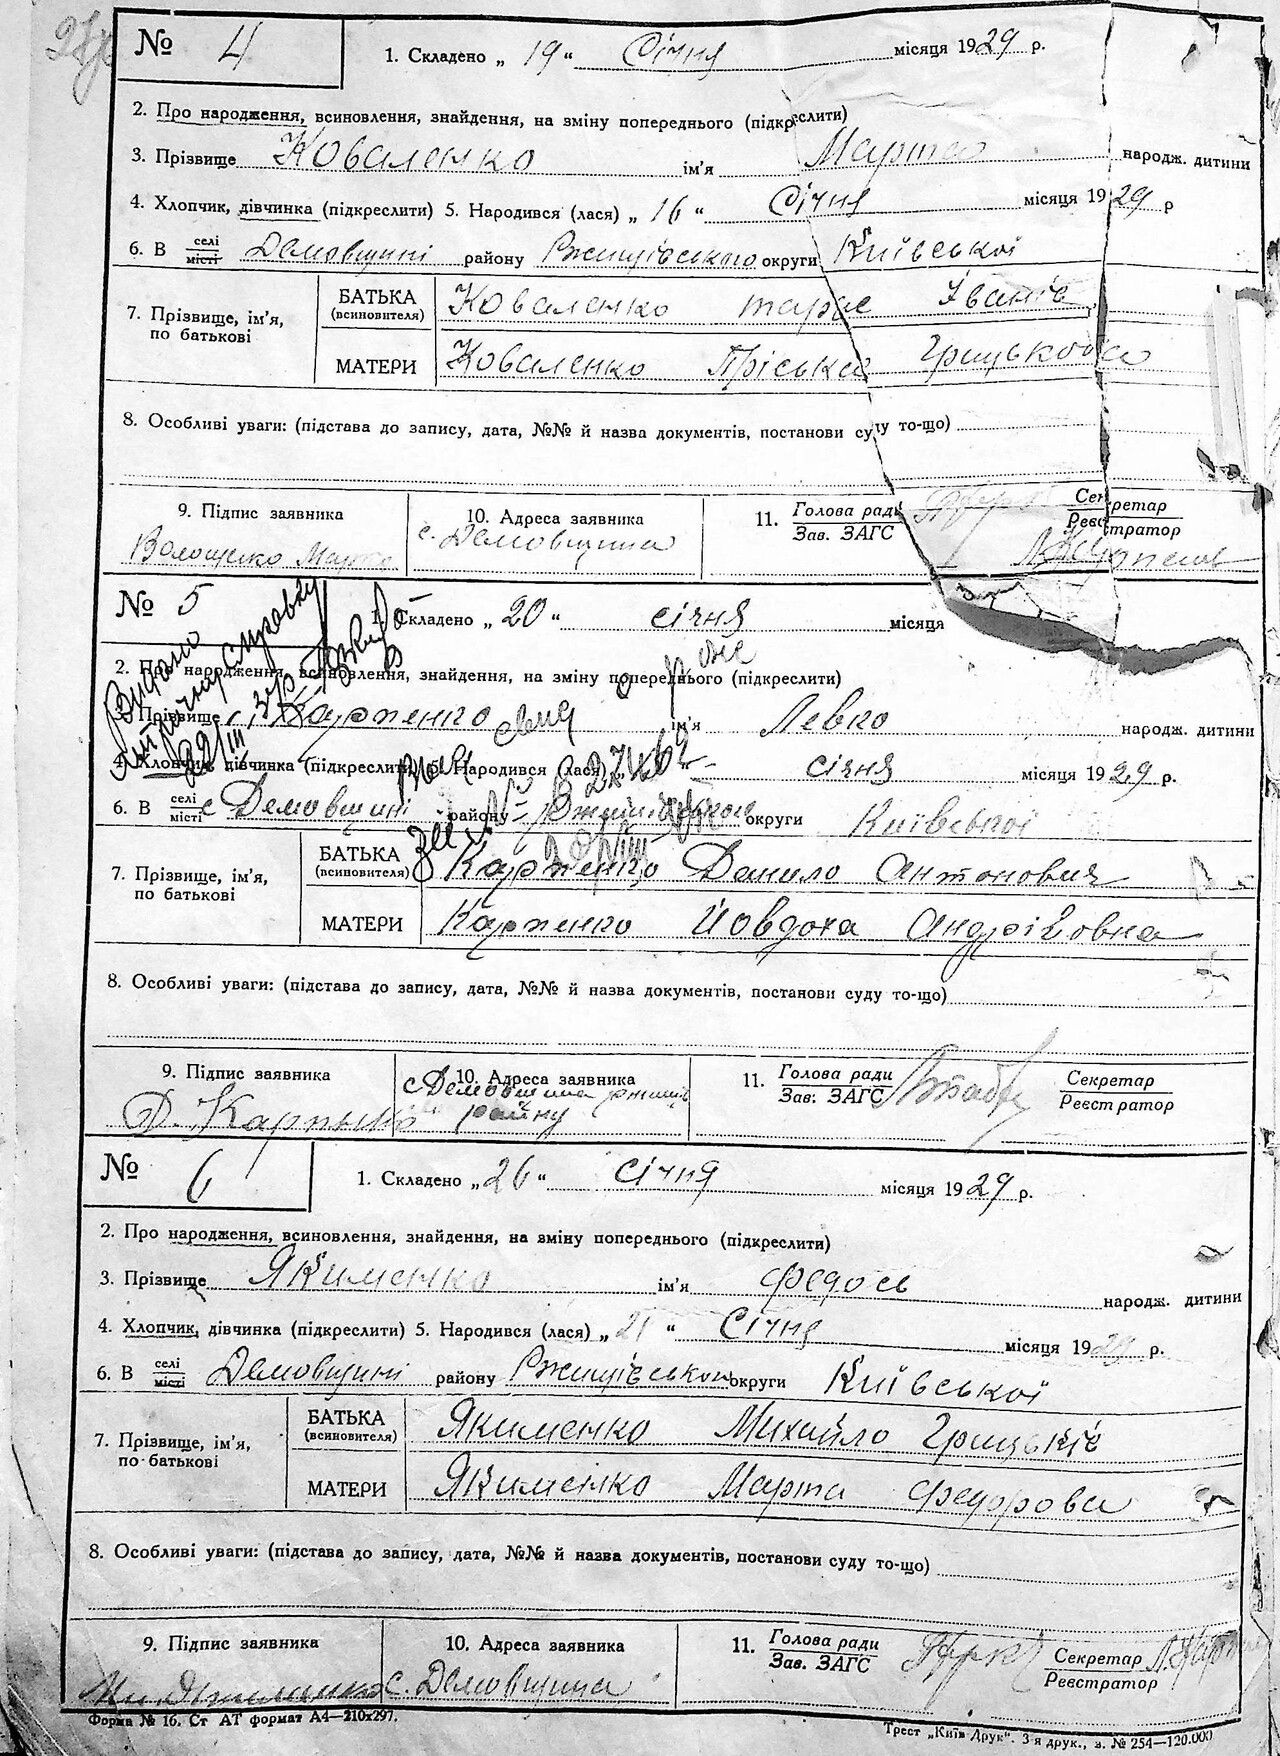 № 4
1. Складено „ 19 “ Січня місяця 1929 р.
2. Про народження, всиновлення, знайдення, на зміну попереднього (підкреслити)
3. Прізвище Коваленко ім'я Марта народж. дитини
4. Хлопчик, дівчинка (підкреслити) 5. Народився (лася) „ 16 “ Січня місяця 1929 р
6. В селі місті Демовщині району Ржищівського округи Київської
7. Прізвище, ім'я, по батькові
БАТЬКА (всиновителя) Коваленко Тарас Іванів
МАТЕРИ Коваленко Пріська Грицькова
8. Особливі уваги: (підстава до запису, дата, №№ й назва документів, постанови суду то-що)
9. Підпис заявника 10. Адреса заявника 11. Голова ради Зав. ЗАГС Секретар Реєстратор
с. Демовщина
№ 5
1. Складено „ 20 “ січня місяця
2. Про народження, всиновлення, знайдення, на зміну попереднього (підкреслити)
Прізвище Карпенко ім'я Левко народж. дитини
4. Хлопчик, дівчинка (підкреслити) 5. Народився (лася) січня місяця 1929 р.
6. В селі місті с Демовщині району округи Київської
7. Прізвище, ім'я, по батькові
БАТЬКА (всиновителя) Карпенко Данило Антонович
МАТЕРИ Карпенко Йовдоха Андріївна
8. Особливі уваги: (підстава до запису, дата, №№ й назва документів, постанови суду то-що)
9. Підпис заявника 10. Адреса заявника 11. Голова ради Зав. ЗАГС Секретар Реєстратор
с Демовщина
району
№ 6
1. Складено „ 26 “ Січня місяця 1929 р.
2. Про народження, всиновлення, знайдення, на зміну попереднього (підкреслити)
3. Прізвище Якименко ім'я Федось народж. дитини
4. Хлопчик, дівчинка (підкреслити) 5. Народився (лася) „ 21 “ Січня місяця 1929 р.
6. В селі місті Демовщині району Ржищівського округи Київської
7. Прізвище, ім'я, по батькові
БАТЬКА (всиновителя) Якименко Михайло Грицьків
МАТЕРИ Якименко Марта Федорова
8. Особливі уваги: (підстава до запису, дата, №№ й назва документів, постанови суду то-що)
9. Підпис заявника 10. Адреса заявника 11. Голова ради Зав. ЗАГС Секретар Реєстратор
с. Демовщина
Форма № 16. Ст АТ формат А4—210х297.
Трест „Київ Друк“. 3 я друк., з. № 254—120.000